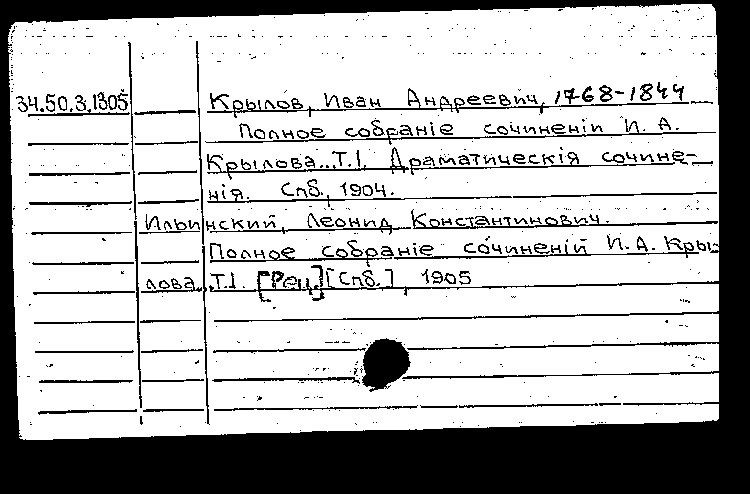 34.50.3.1305 Крылов, Иван Андреевич, 1768-1844
Полное собраніе сочиненіи И. А.
Крылова..Т.I. Драматическія сочине-
нія. Спб., 1904.
Ильинский, Леонид Константинович.
Полное собраніе сочиненій И.А. Кры-
лова..Т.I. [Рец.] [Спб.], 1905